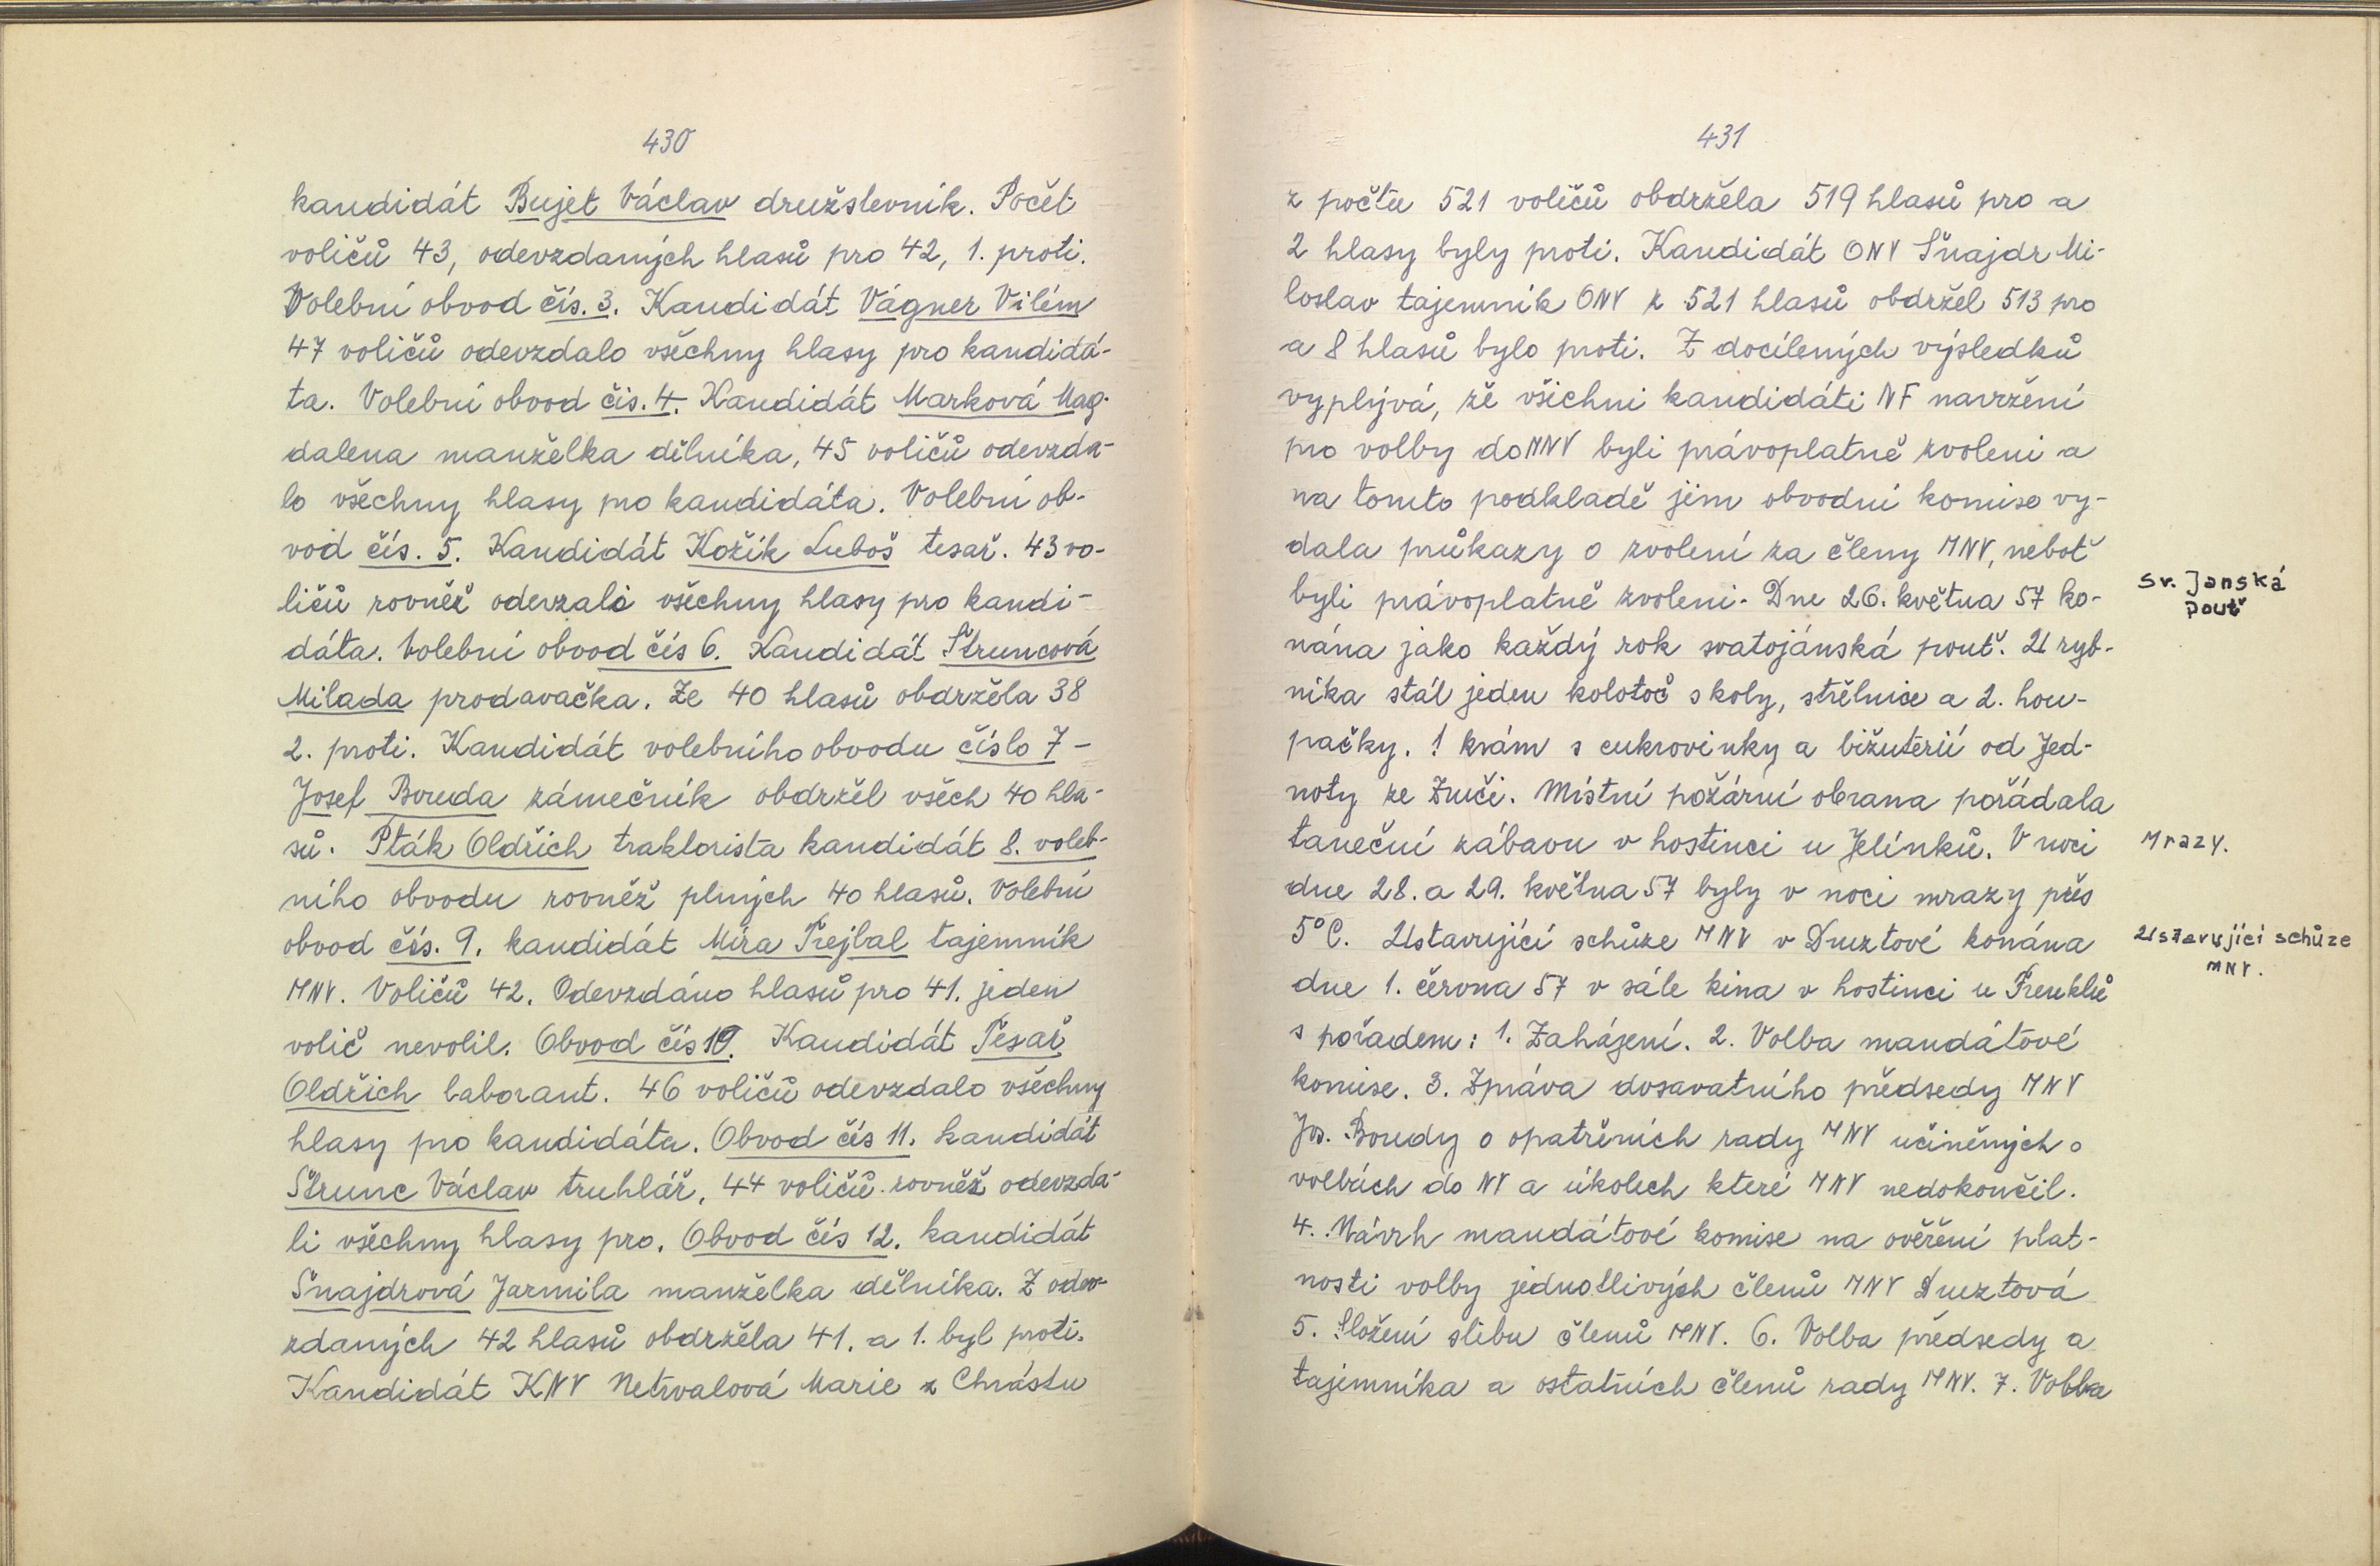 430
kandidát Bujet Václav družstevník. Počet
voličů 43, odevzdaných hlasů pro 42, 1. proti.
Volební obvod čís. 3. Kandidát Vágner Vilém
47 voličů odevzdalo všechny hlasy pro kandidá-
ta. Volební obvod čis. 4. Kandidát Marková Mag-
dalena manželka dělníka, 45 voličů odevzda-
lo všechny hlasy pro kandidáta. Volební ob-
vod čís. 5. Kandidát Kožík Luboš tesař. 43 vo-
ličů rovněž odevzalo všechny hlasy pro kandi-
dáta. Volební obvod čís 6. Kandidát Štruncová
Milada prodavačka. Ze 40 hlasů obdržela 38
2. proti. Kandidát volebního obvodu číslo 7 -
Josef Bouda zámečník obdržel všech 40 hla-
sů. Pták Oldřich traktorista kandidát 8. voleb-
ního obvodu rovněž plných 40 hlasů. Volební
obvod čís. 9. kandidát Míra Trejbal tajemník
MNV. Voličů 42. Odevzdáno hlasů pro 41. jeden
volič nevolil. Obvod čís 10. Kandidát Tesař
Oldřich laborant. 46 voličů odevzdalo všechny
hlasy pro kandidáta. Obvod čís 11. kandidát
Štrunc Václav truhlář, 44 voličů rovněž odevzda-
li všechny hlasy pro. Obvod čís 12. kandidát
Šnajdrová Jarmila manželka dělníka. Z odev-
zdaných 42 hlasů obdržela 41. a 1. byl proti.
Kandidát KNV Netrvalová Marie z Chrástu
431
z počtu 521 voličů obdržela 519 hlasů pro a
2 hlasy byly proti. Kandidát ONV Šnajdr Mi-
loslav tajemník ONV z 521 hlasů obdržel 513 pro
a 8 hlasů bylo proti. Z docílených výsledků
vyplývá, že všichni kandidáti NF navržení
pro volby do MNV byli právoplatně zvoleni a
na tomto podkladě jim obvodní komise vy-
dala průkazy o zvolení za členy MNV, neboť
byli právoplatně zvoleni. Dne 26. května 57 ko-
nána jako každý rok svatojánská pouť. U ryb-
níka stál jeden kolotoč s koly, střelnice a 2. hou-
pačky. 1 krám s cukrovinky a bižuterií od Jed-
noty ze Zruči. Místní požární obrana pořádala
taneční zábavu v hostinci u Jelínků. V noci
dne 28. a 29. května 57 byly v noci mrazy přes
5°C. Ustavující schůze MNV v Druztové konána
dne 1. června 57 v sále kina v hostinci u Frenklů
s pořadem: 1. Zahájení. 2. Volba mandátové
komise. 3. Zpráva dosavatního předsedy MNV
Jos. Boudy o opatřeních rady MNV učiněných o
volbách do NV a úkolech které MNV nedokončil.
4. Návrh mandátové komise na ověření plat-
nosti volby jednotlivých členů MNV Druztová
5. Složení slibu členů MNV. 6. Volba předsedy a
tajemníka a ostatních členů rady MNV. 7. Volba
Sv. Janská
pouť
Mrazy.
Ustavující schůze
MNV.